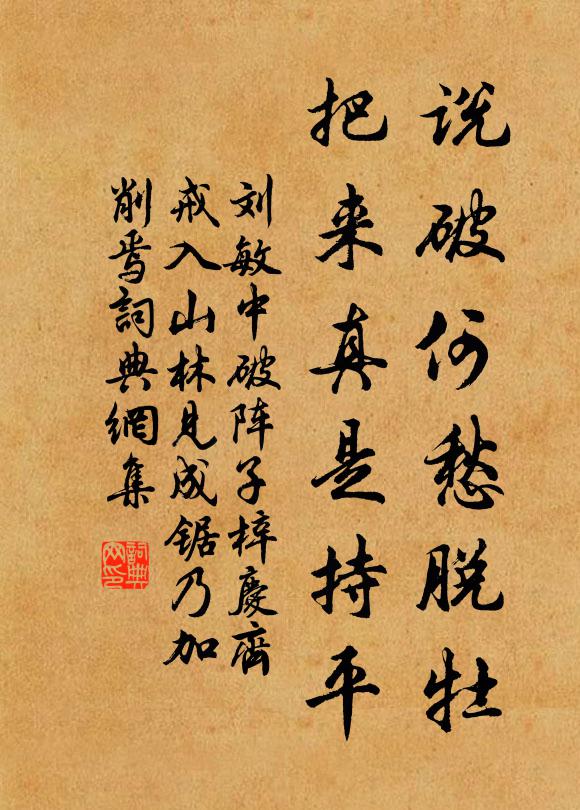 说破何愁脱牡
把来真是持平
刘敏中破阵子梓庆齐
戒入山林见成锯乃加
削焉詞典網集
詞典
网印